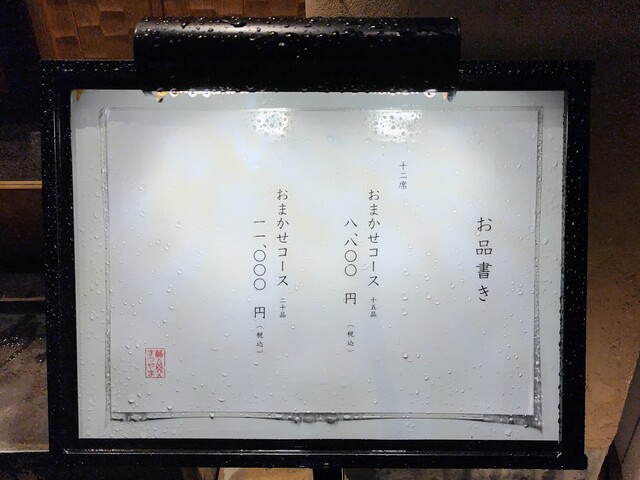 お品書き
十二席
おまかせコース 十五品
八、八〇〇 円（税込）
おまかせコース 二十品
一一、〇〇〇 円（税込）
まつやま